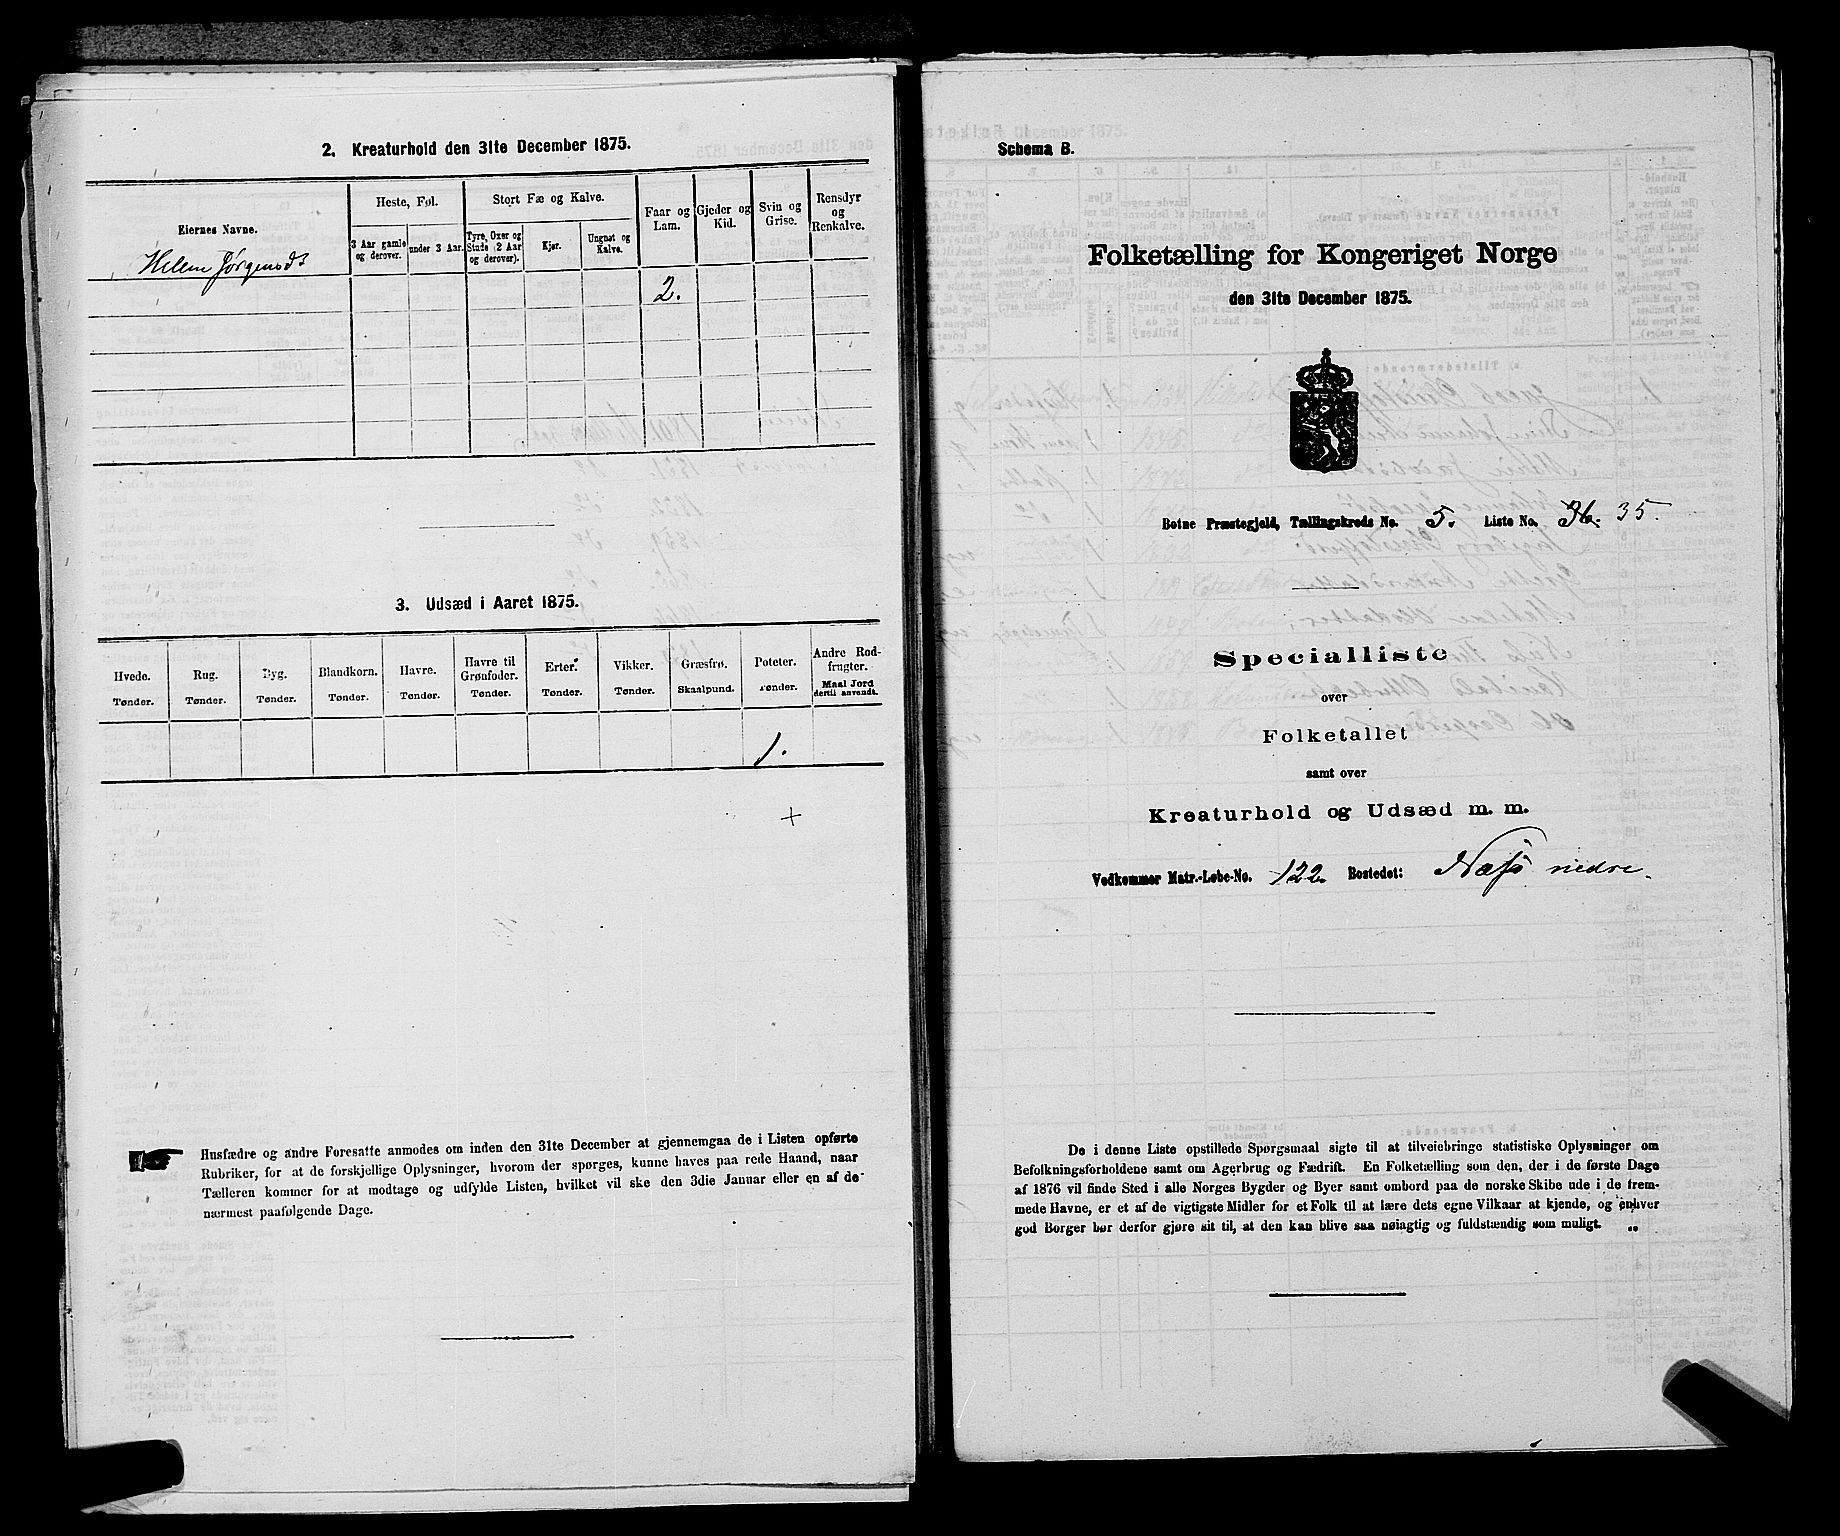 2. Kreaturhold den 31te December 1875.
Eiernes Navne.
Heste, Føl.
3 Aar gamle og derover.
under 3 Aar.
Stort Fæ og Kalve.
Tyre, Oxer og Stude (2 Aar og derover).
Kjør.
Ungnøt og Kalve.
Faar og Lam.
Gjeder og Kid.
Svin og Grise.
Rensdyr og Renkalve.
Helene Jørgensdt
2.
3. Udsæd i Aaret 1875.
Hvede. Tønder.
Rug. Tønder.
Byg. Tønder.
Blandkorn. Tønder.
Havre. Tønder.
Havre til Grønfoder. Tønder.
Erter. Tønder.
Vikker. Tønder.
Græsfrø. Skaalpund.
Poteter. Tønder.
Andre Rodfrugter. Maal Jord dertil anvendt.
1.
+
Husfædre og andre Foresatte anmodes om inden den 31te December at gjennemgaa de i Listen opførte
Rubriker, for at de forskjellige Oplysninger, hvorom der spørges, kunne haves paa rede Haand, naar
Tælleren kommer for at modtage og udfylde Listen, hvilket vil ske den 3die Januar eller en af de
nærmest paafølgende Dage.
Schema B.
Folketælling for Kongeriget Norge
den 31te December 1875.
Botne Præstegjeld, Tællingskreds No. 5. Liste No. 36. 35.
Specialliste
over
Folketallet
samt over
Kreaturhold og Udsæd m. m.
Vedkommer Matr.-Løbe-No. 122. Bostedet: Næss nedre.
De i denne Liste opstillede Spørgsmaal sigte til at tilveiebringe statistiske Oplysninger om
Befolkningsforholdene samt om Agerbrug og Fædrift. En Folketælling som den, der i de første Dage
af 1876 vil finde Sted i alle Norges Bygder og Byer samt ombord paa de norske Skibe ude i de frem-
mede Havne, er et af de vigtigste Midler for et Folk til at lære dets egne Vilkaar at kjende, og enhver
god Borger bør derfor gjøre sit til, at den kan blive saa nøiagtig og fuldstændig som muligt.